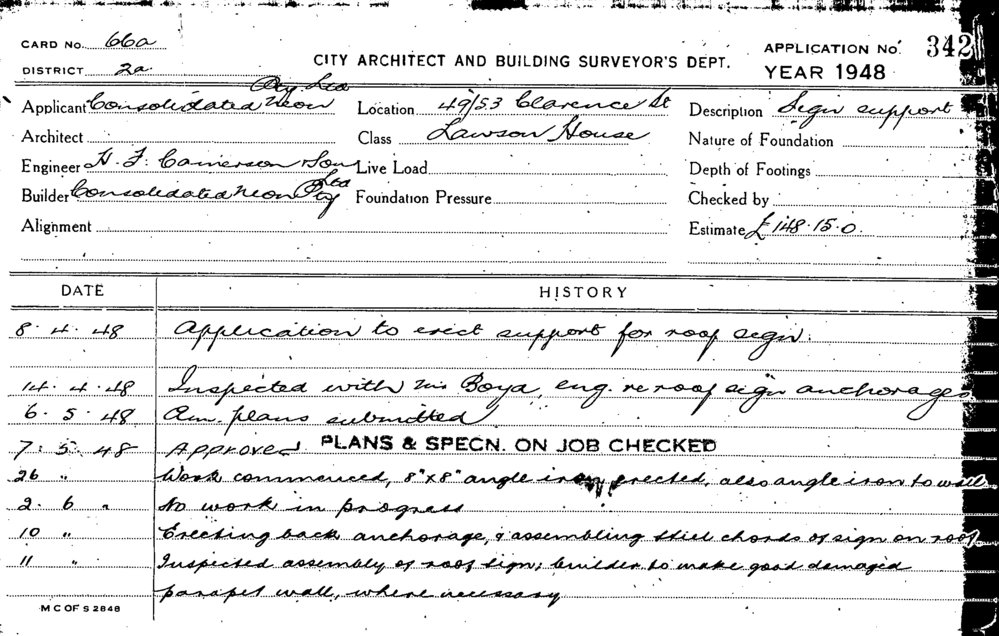 CARD No. 66a
DISTRICT 2a
CITY ARCHITECT AND BUILDING SURVEYOR'S DEPT.
APPLICATION No. 342
YEAR 1948
Applicant Consolidated Neon Pty Ltd
Location 49/53 Clarence St
Description Sign support
Architect
Class Lawson House
Nature of Foundation
Engineer H. F. Camerson & Son
Live Load
Depth of Footings
Builder Consolidated Neon Pty Ltd
Foundation Pressure
Checked by
Alignment
Estimate £148.15.0.
DATE HISTORY
8.4.48 Application to erect support for roof sign.
14.4.48 Inspected with Mr Boyd, eng. re roof sign anchorages
6.5.48 Am. plans submitted
7.5.48 Approved PLANS & SPECN. ON JOB CHECKED
26 " Work commenced, 8"x8" angle iron erected, also angle iron to wall
2.6 " No work in progress
10 " Erecting back anchorage, & assembling steel chords of sign on roof
11 " Inspected assembly of roof sign; builder to make good damaged
parapet wall, where necessary
M C OF S 2848